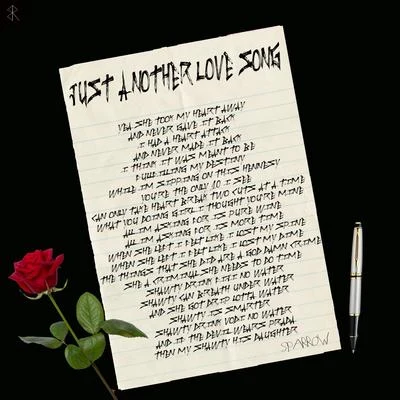 JUST ANOTHER LOVE SONG
YEA SHE TOOK MY HEART AWAY
AND NEVER GAVE IT BACK
I HAD A HEART ATTACK
AND NEVER MADE IT BACK
I THINK IT WAS MEANT TO BE
FULLFILLING MY DESTINY
WHILE IM SIPPING ON THIS HENNESSY
YOU'RE THE ONLY 10 I SEE
CAN ONLY TAKE HEART BREAK TWO CUTS AT A TIME
WHAT YOU DOING GIRL I THOUGHT YOU'RE MINE
ALL IM ASKING FOR IS PURE WINE
ALL IM ASKING FOR IS MORE TIME
WHEN SHE LEFT I FELT LIKE I LOST MY SPINE
WHEN SHE LEFT I FELT LIKE I LOST MY DIME
THE THINGS THAT SHE DID ARE A GOD DAMN CRIME
SHE A CRIMINAL SHE NEEDS TO DO TIME
SHAWTY DRINK FIJI NO WATER
SHAWTY CAN BREATH UNDER WATER
AND SHE GOT DRIP LOTTA WATER
SHAWTY IS SMARTER
SHAWTY DRINK VODI NO WATER
AND IF THE DEVIL WEARS PRADA
THEN MY SHAWTY HIS DAUGHTER
SPARROW